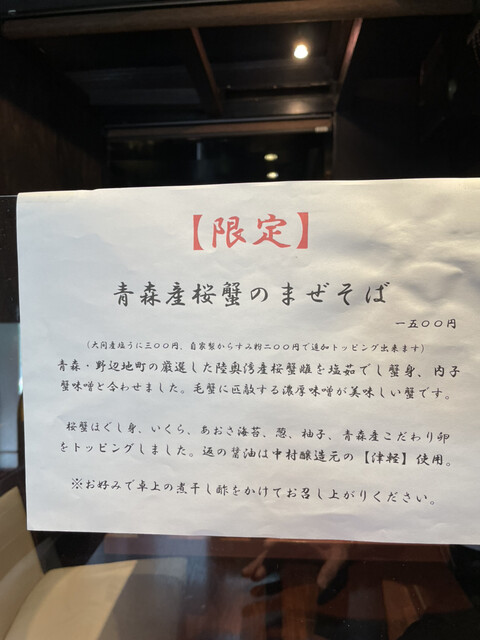 【限定】
青森産桜蟹のまぜそば
一五〇〇円
(大間産塩うに三〇〇円、自家製からすみ粉二〇〇円で追加トッピング出来ます)
青森・野辺地町の厳選した陸奥湾産桜蟹雌を塩茹でし蟹身、内子
蟹味噌と合わせました。毛蟹に匹敵する濃厚味噌が美味しい蟹です。
桜蟹ほぐし身、いくら、あおさ海苔、葱、柚子、青森産こだわり卵
をトッピングしました。返の醤油は中村醸造元の【津軽】使用。
※お好みで卓上の煮干し酢をかけてお召し上がりください。